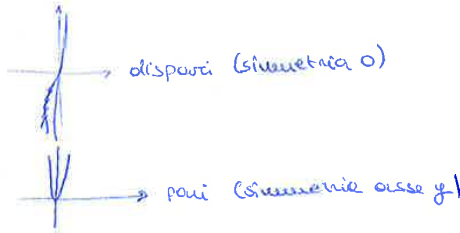 dispari (simmetria O)
pari (simmetria asse y)